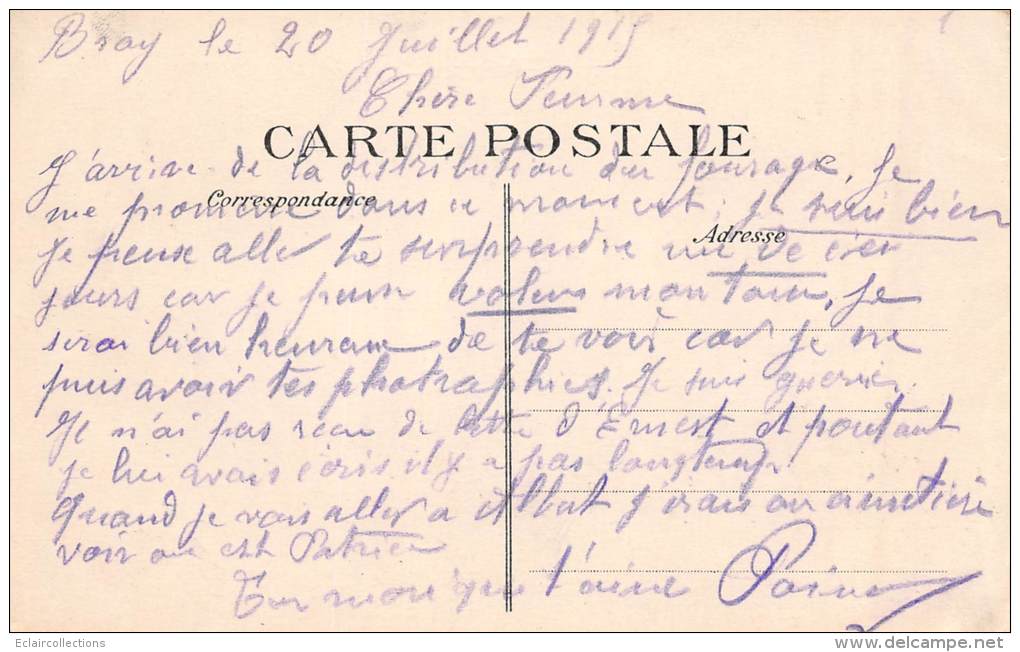 Bray le 20 Juillet 1915
Chère
CARTE POSTALE
J'arrive de la distribution du fourage, je
Correspondance
me promène dans ce moment, je suis bien
Adresse
Je peux aller te surprendre un de ces
jours car je peux mon tour, je
serai bien heureux de te voir car je ne
puis avoir tes photraphies. Je suis
Je n'ai pas recu de lettre d'Ernest et poutant
je lui avais écris il y a pas longtemps
Quand je vais aller a Albert j'irais au cimetière
voir ou est
Ton qui t'aime
Eclaircollections
delcampe.net